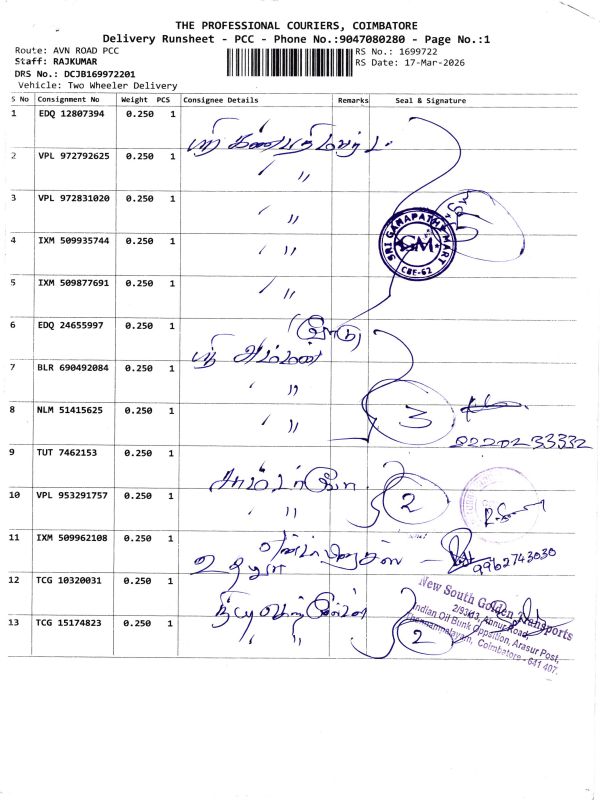 THE PROFESSIONAL COURIERS, COIMBATORE
Delivery Runsheet - PCC - Phone No.:9047080280 - Page No.:1
Route: AVN ROAD PCC
Staff: RAJKUMAR
DRS No.: DCJB169972201
Vehicle: Two Wheeler Delivery
RS No.: 1699722
RS Date: 17-Mar-2026
S No Consignment No Weight PCS Consignee Details Remarks Seal & Signature
1 EDQ 12807394 0.250 1
2 VPL 972792625 0.250 1 〃
3 VPL 972831020 0.250 1 〃
SRI GANAPATHY MART
GM
CBE-62
4 IXM 509935744 0.250 1 〃
5 IXM 509877691 0.250 1 〃
6 EDQ 24655997 0.250 1
ஸ்ரீ அம்மன்
7 BLR 690492084 0.250 1 〃
8 NLM 51415625 0.250 1 〃
3
9 TUT 7462153 0.250 1
10 VPL 953291757 0.250 1 〃
2
11 IXM 509962108 0.250 1
9962743030
12 TCG 10320031 0.250 1
13 TCG 15174823 0.250 1 〃
2
New South Golden Transports
2/93/43, Annur Road,
Indian Oil Bunk Opposition, Arasur Post,
Thennampalayam, Coimbatore - 641 407.